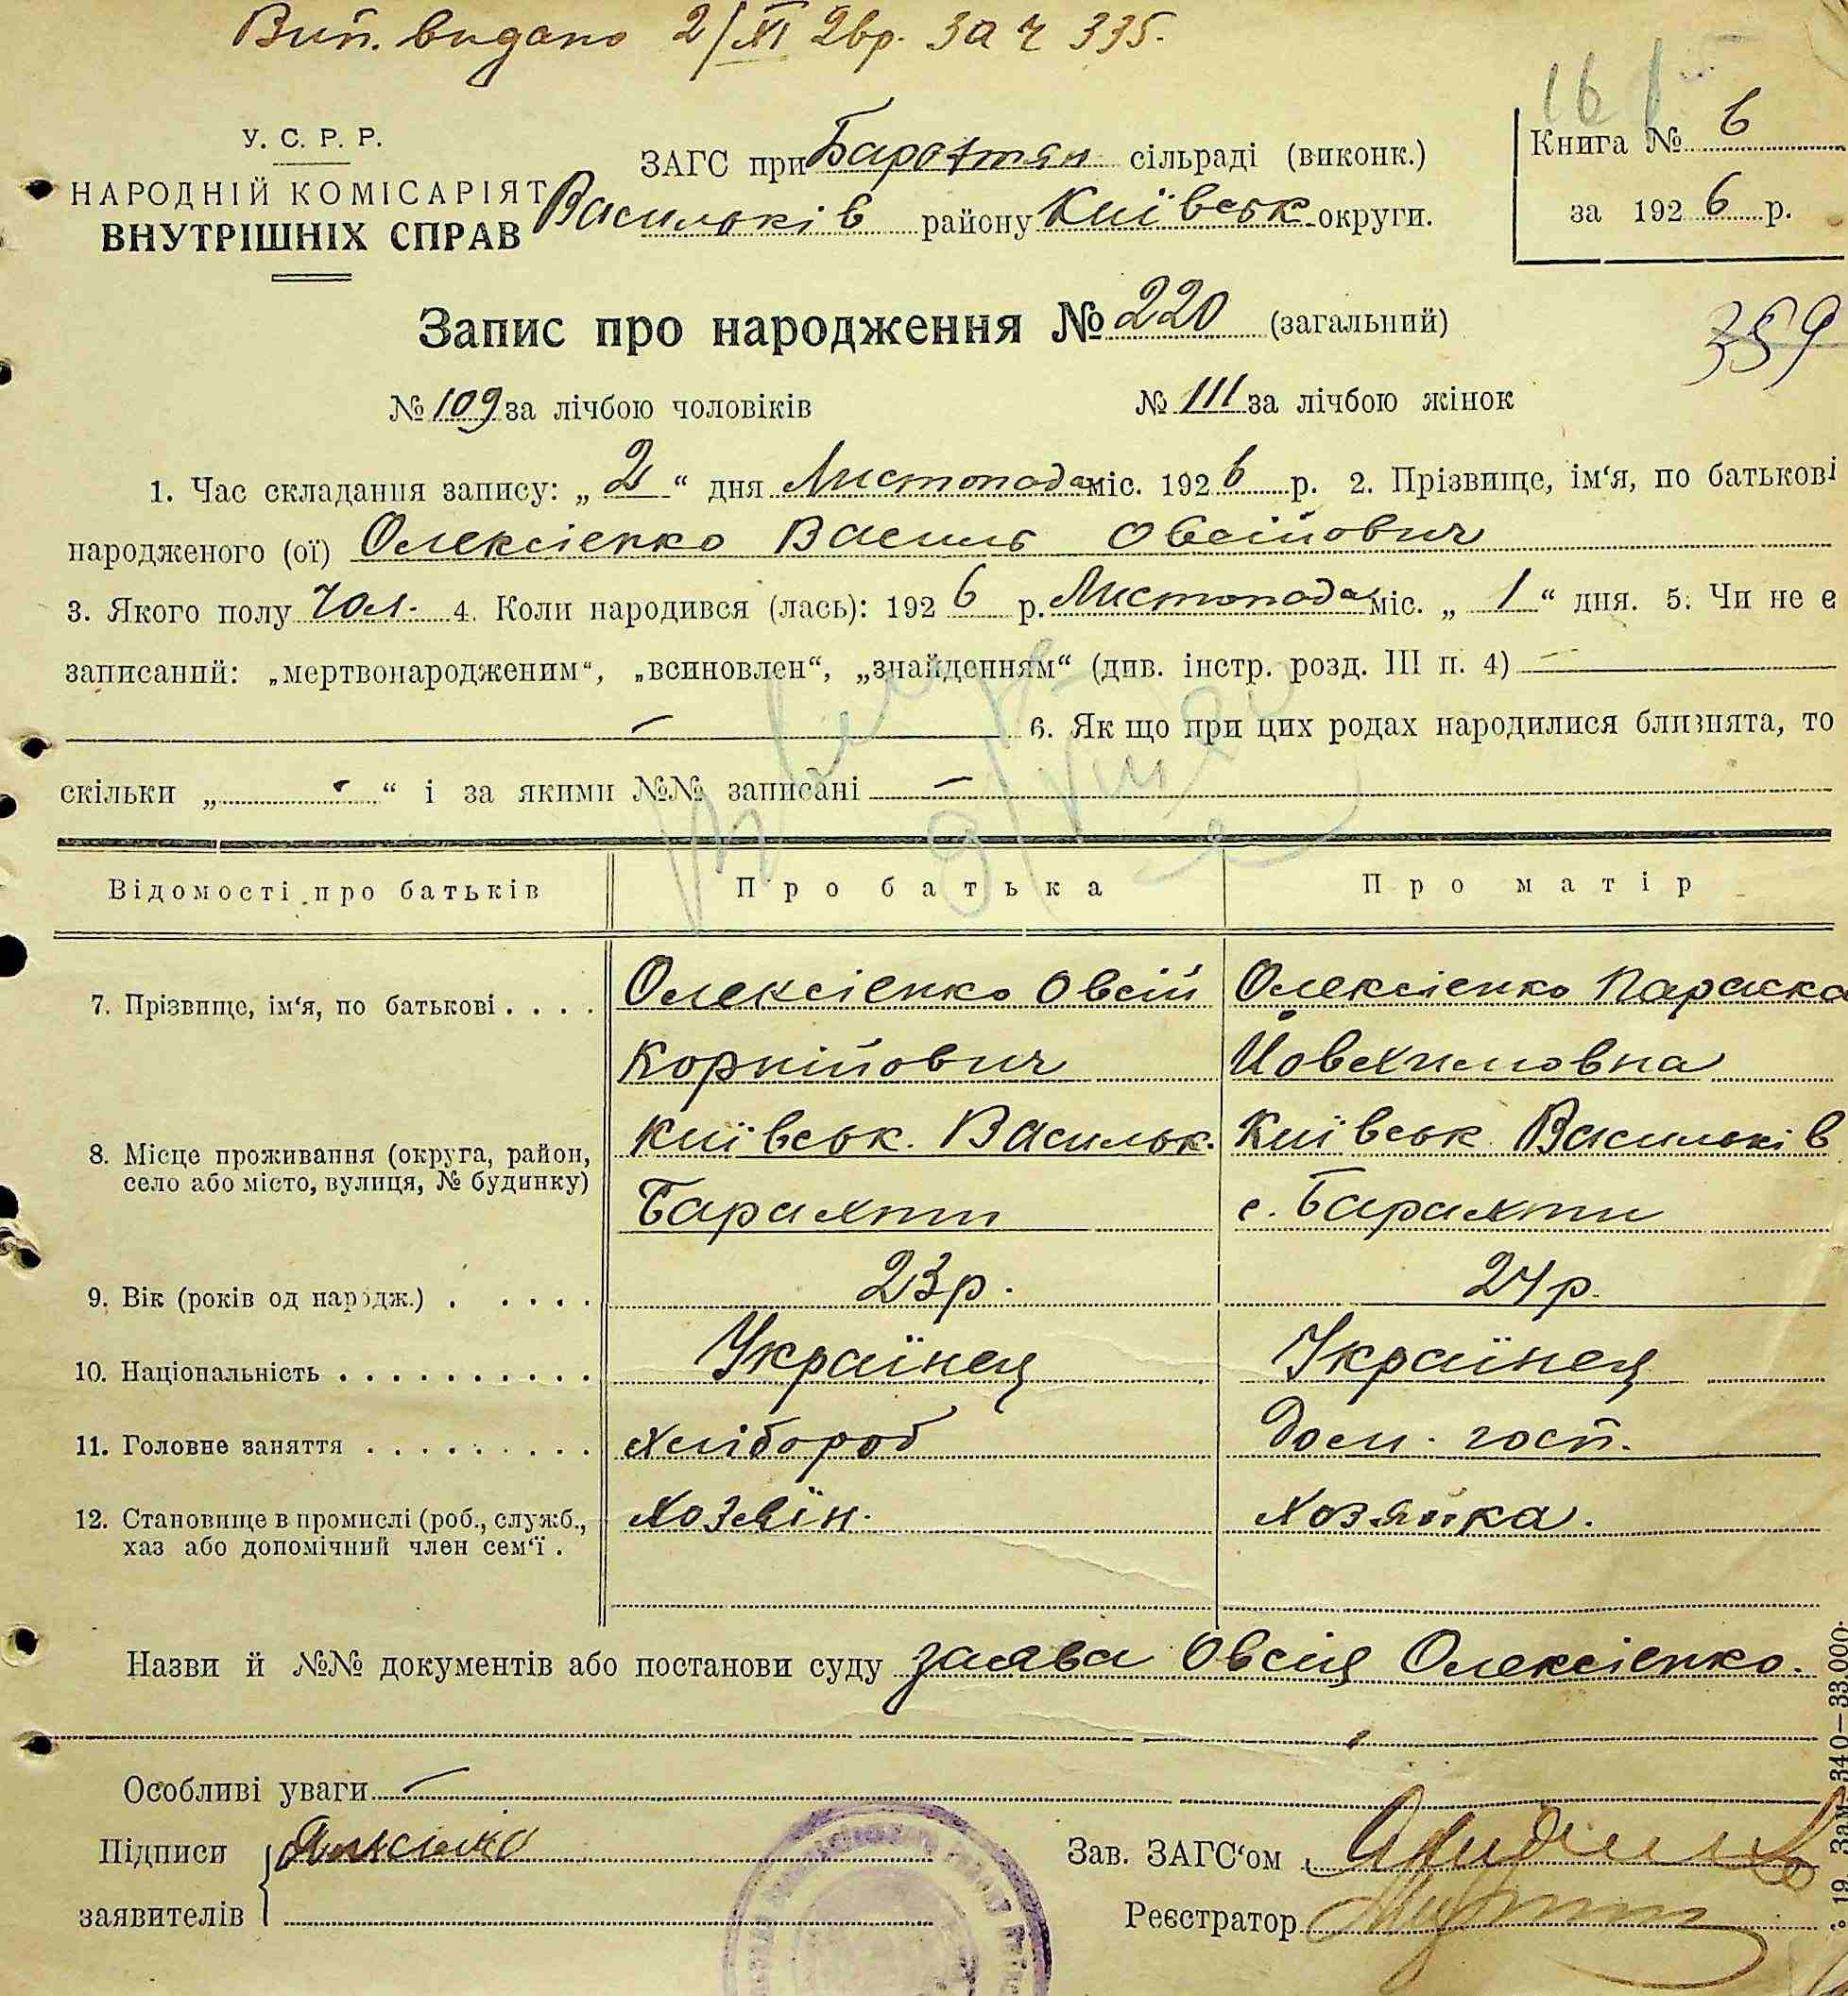 Вип. видано 2/XI 26р. за ч 335.
161
У. С. Р. Р.
НАРОДНІЙ КОМІСАРІЯТ
ВНУТРІШНІХ СПРАВ
ЗАГС при Барахтян сільраді (виконк.)
Васильків району Київськ округи.
Книга № 6
за 1926 р.
Запис про народження № 220 (загальний)
359
№ 109 за лічбою чоловіків № 111 за лічбою жінок
1. Час складання запису: „2“ дня Листопада міс. 1926 р. 2. Прізвище, ім‘я, по батькові
народженого (ої) Олексієнко Василь Овсійович
3. Якого полу чол. 4. Коли народився (лась): 1926 р. Листопада міс. „1“ дня. 5. Чи не є
записаний: „мертвонародженим“, „всиновлен“, „знайденням“ (див. інстр. розд. III п. 4) —
— 6. Як що при цих родах народилися близнята, то
скільки „-“ і за якими №№ записані —
Відомості про батьків Про батька Про матір
7. Прізвище, ім‘я, по батькові . . . . Олексієнко Овсій Олексієнко Параска
Корнійович Йовхимовна
8. Місце проживання (округа, район, Київськ. Васильк. Київськ Васильків
село або місто, вулиця, № будинку) Барахти с. Барахти
9. Вік (років од народж.) . . . . . 23р. 24р.
10. Національність . . . . . . . . . . Українец Українец
11. Головне заняття . . . . . . . . . хлібороб Дом. госп.
12. Становище в промислі (роб., служб., хозяїн. хозяйка.
хаз або допомічний член сем‘ї .
Назви й №№ документів або постанови суду заява Овсія Олексієнко.
Особливі уваги —
Підписи
заявителів
Зав. ЗАГС‘ом
Реєстратор
19. Зам. 340—33.000.